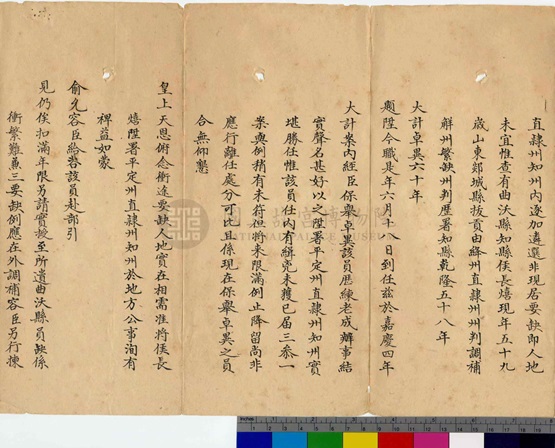 直隸州知州內逐加遴選非現居要缺即人地
未宜惟查有曲沃縣知縣侯長熺現年五十九
歲山東郯城縣拔貢由絳州直隸州州判調補
解州繁缺州判歷署知縣乾隆五十八年
大計卓異六十年
題陞今職是年六月十八日到任茲於嘉慶四年
大計案內經臣保舉卓異該員歷練老成辦事結
實聲名甚好以之陞署平定州直隸州知州實
堪勝任惟該員任內有緝兇未獲已届三叅一
案與例稍有未符但將来限滿例止降留尚非
應行離任處分可比且係現在保舉卓異之員
合無仰懇
皇上天恩俯念衝途要缺人地實在相需准將侯長
熺陞署平定州直隸州知州於地方公事洵有
裨益如蒙
俞允容臣給咨該員赴部引
見仍俟扣滿年限另請實授至所遺曲沃縣員缺係
衝繁難兼三要缺例應在外調補容臣另行揀